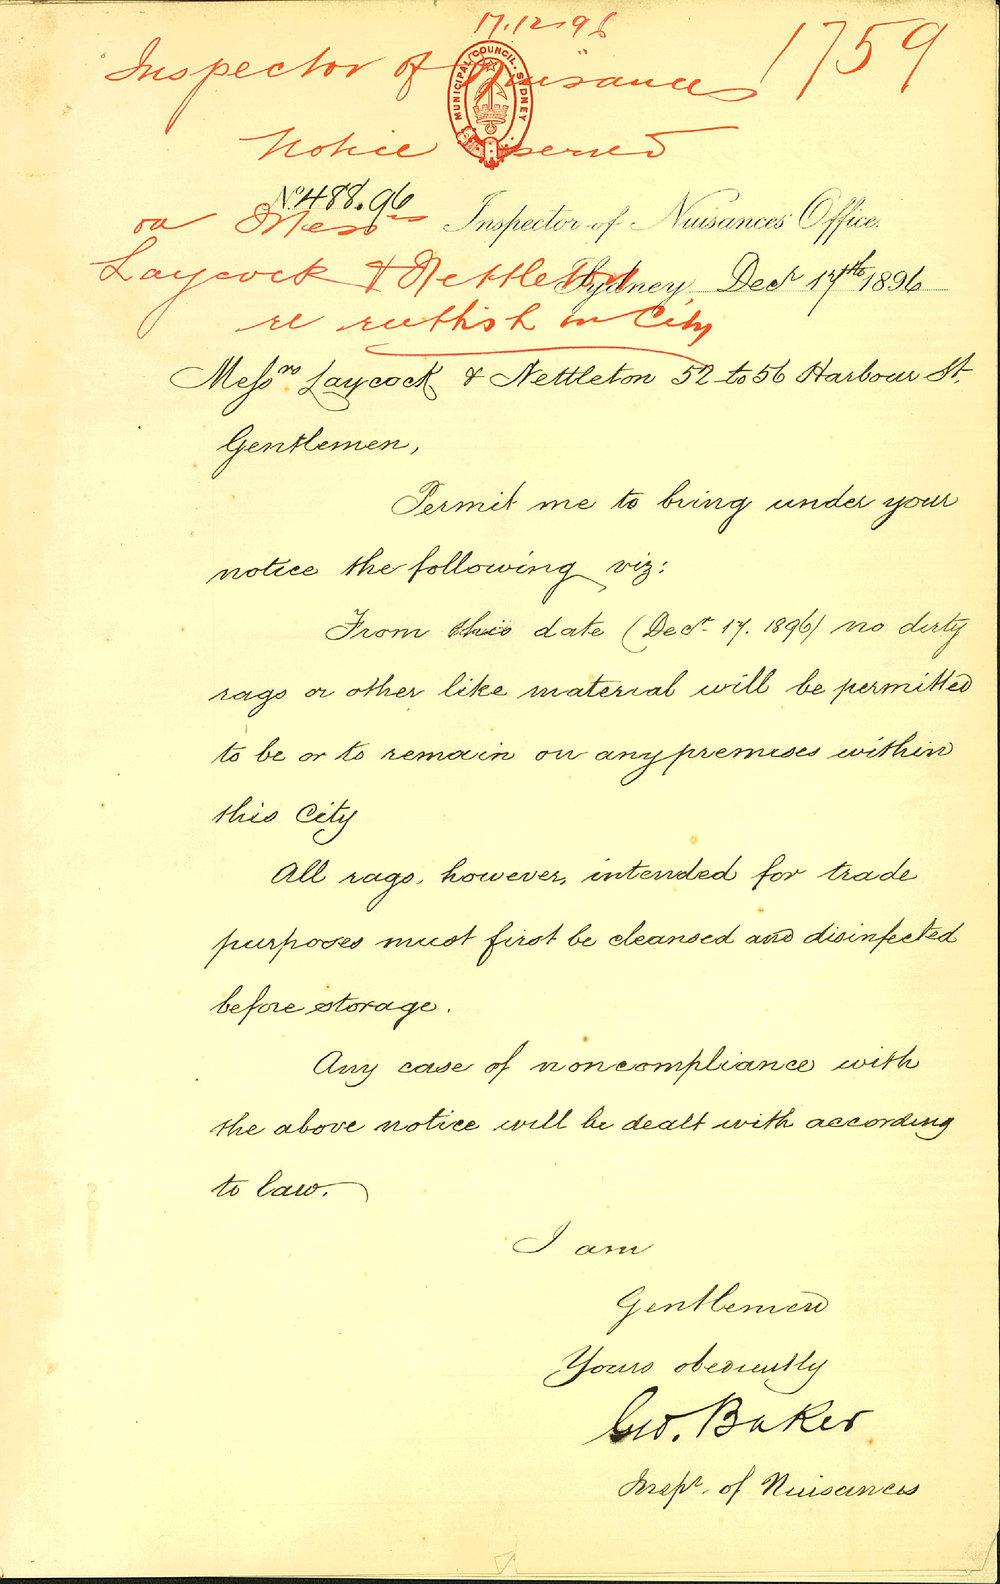 17.12.96
Inspector of Nuisances 1759
MUNICIPAL COUNCIL. SYDNEY
Notice served
No. 488.96
on Messrs
Inspector of Nuisances Office.
Laycock & Nettleton
Sydney, Decr 17th 1896
re rubbish in City
Messrs Laycock & Nettleton 52 to 56 Harbour St.
Gentlemen,
Permit me to bring under your
notice the following viz:
From this date (Decr. 17. 1896) no dirty
rags or other like material will be permitted
to be or to remain on any premises within
this City
All rags, however, intended for trade
purposes must first be cleansed and disinfected
before storage.
Any case of noncompliance with
the above notice will be dealt with according
to law.
I am
Gentlemen
Yours obediently
Geo. Baker
Inspr. of Nuisances